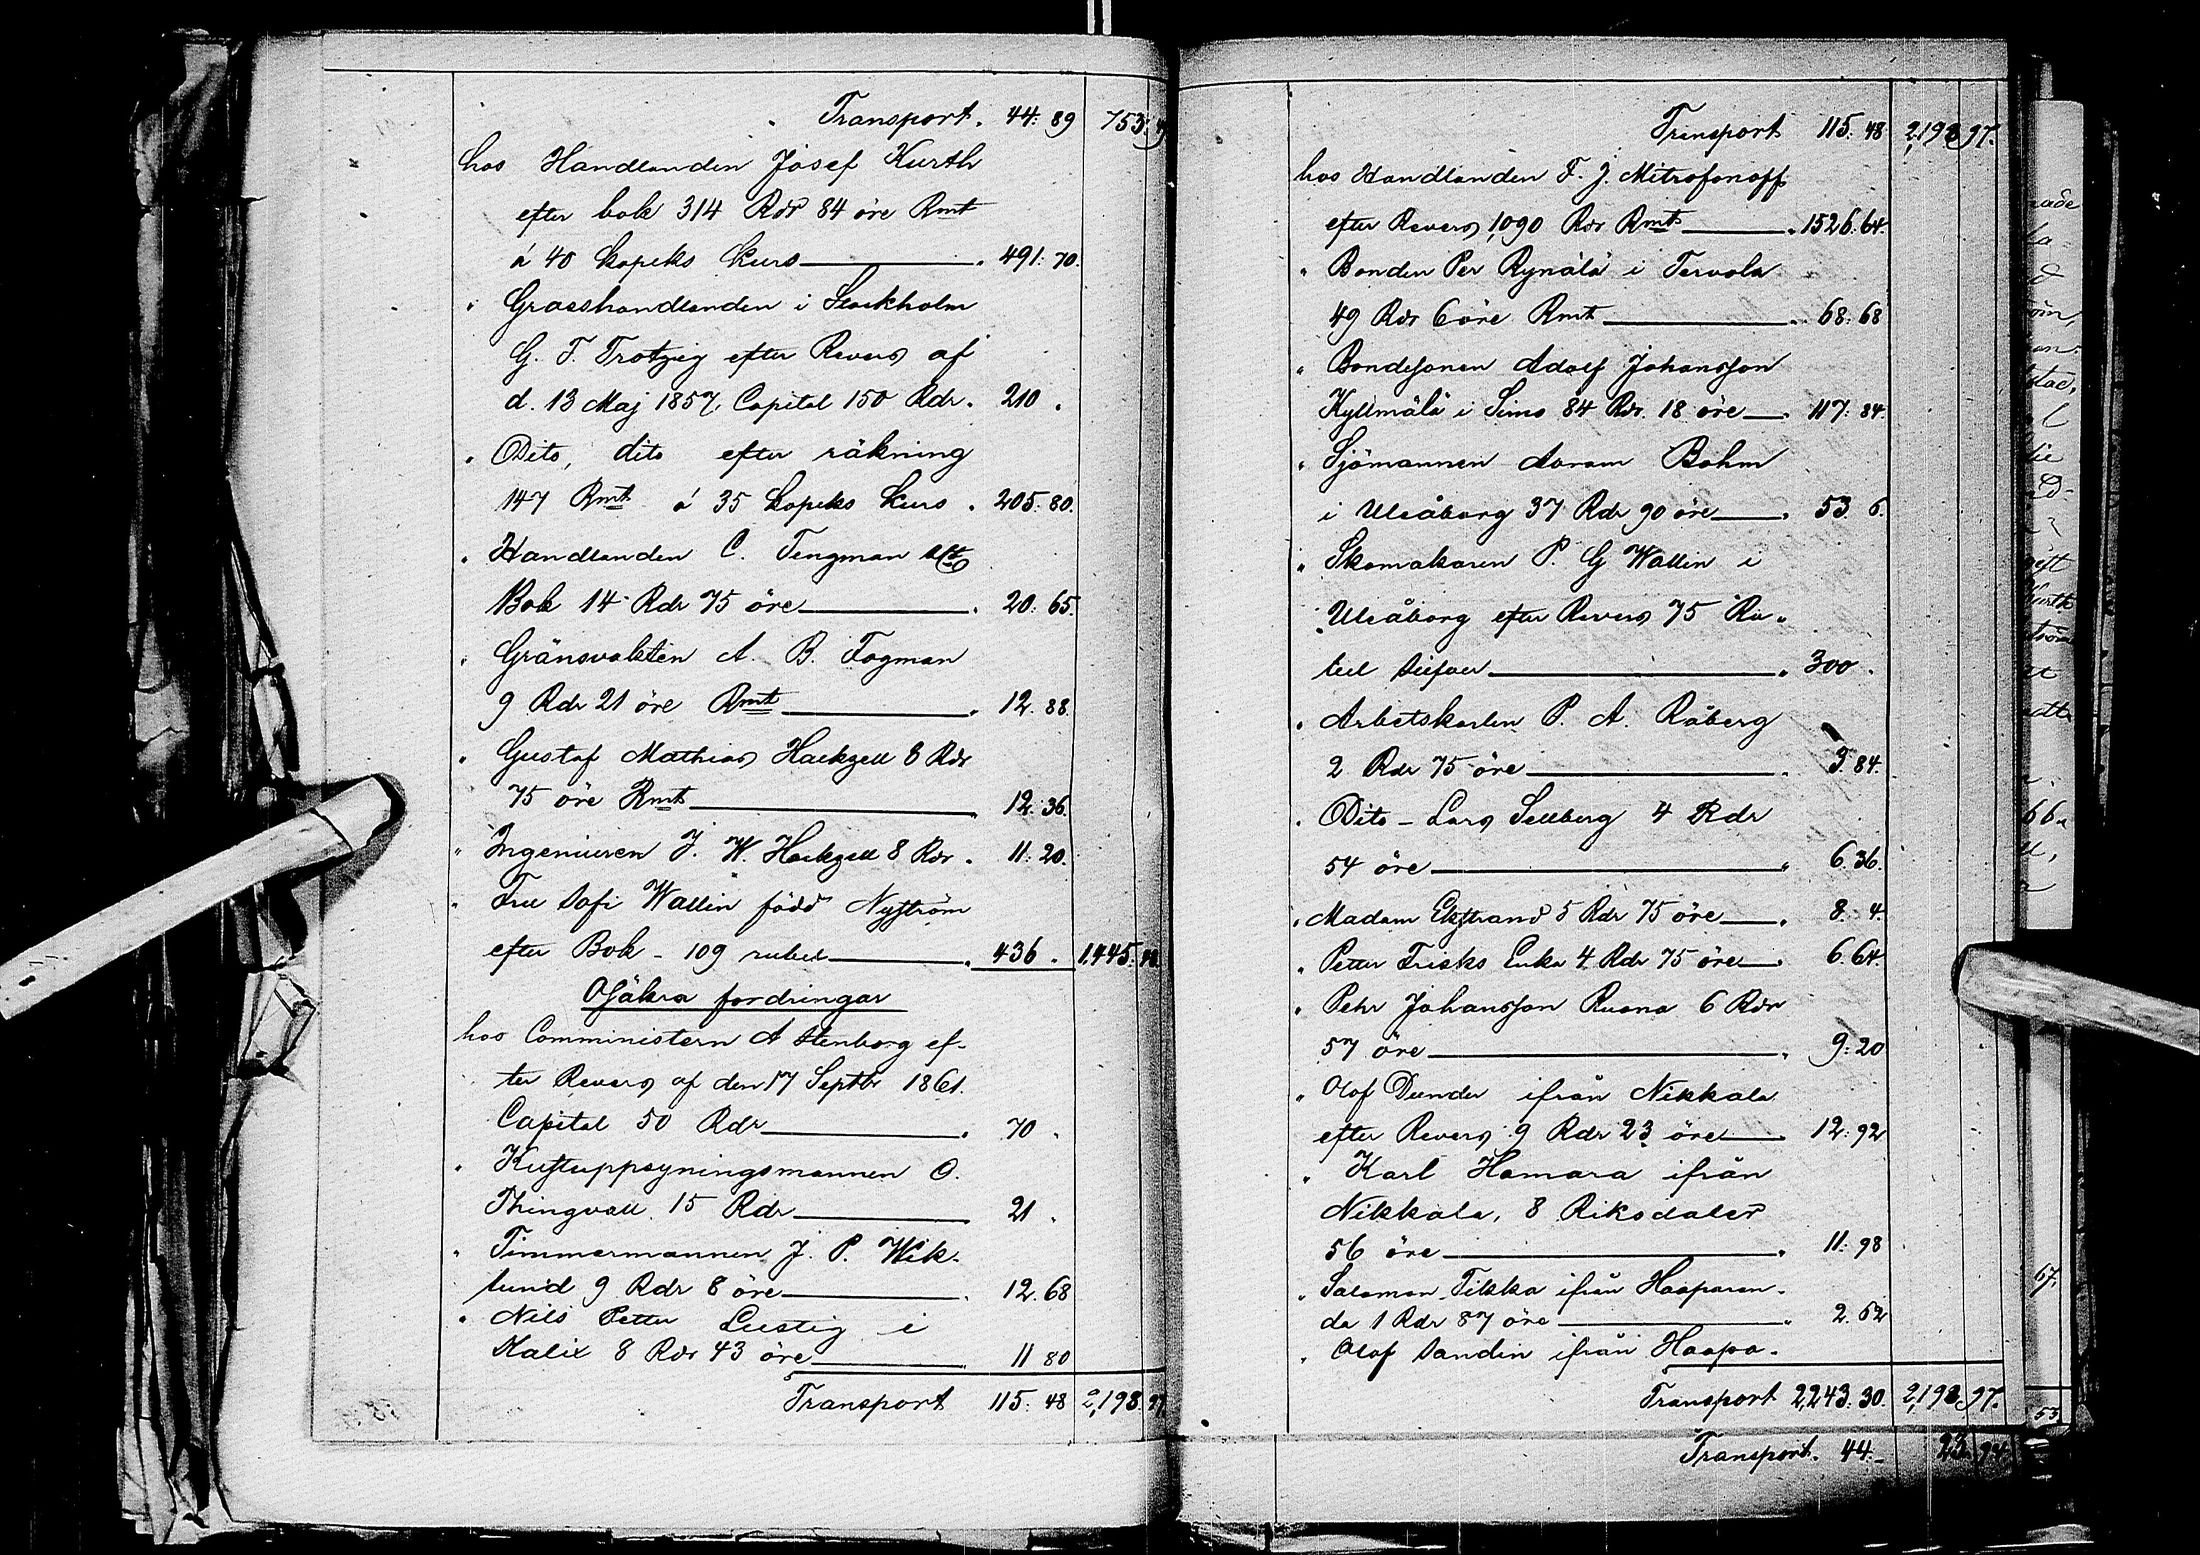 Transport . 44: 89 753: 49
hos Handlanden Josef Kurth
efter bok 314 Rdr 84 öre Rmt
á 40 kopeks kurs . 491: 70.
" Grosshandlanden i Stockholm
G. F. Trotzig efter Revers af
d. 13 Maj 1857, Capital 150 Rdr. 210 .
" Dito, dito efter räkning
147 Rmt á 35 kopeks kurs . 205. 80.
" Handlanden C. Tengman
Bok 14 Rdr 75 öre . 20. 65.
" Gränsvakten A. B. Fogman
9 Rdr 21 öre Rmt . 12. 88.
" Gustaf Mathias Hackzell 8 Rdr
75 öre Rmt . 12. 36.
" Ingeniuren J. W. Hackzell 8 Rdr . 11. 20.
" Fru Sofi Wallin född Nyström
efter Bok - 109 rubel . 436 . 1,445.48
Osäkra fordringar
hos Comministern A Stenborg ef-
ter Revers af den 17 Septbr 1861.
Capital 50 Rdr . 70 .
" Kustuppsyningsmannen O.
Thingvall 15 Rdr 21 .
" Timmermannen J. P. Wik-
lund 9 Rdr 8 öre . 12. 68
" Nils Petter Lustig i
Kalix 8 Rdr 43 öre 11 80
Transport 115. 48 2,198. 97
Transport 115. 48 2,198 97.
hos Handlanden F. J. Mitrofonoff
efter Revers 1,090 Rdr Rmt . 1526. 64.
" Bonden Per Rynälä i Tervola
49 Rdr 6 öre Rmt . 68. 68
" Bondesonen Adolf Johansson
Kyllmälä i Simo 84 Rdr. 18 öre . 117. 84.
" Sjömannen Aaram Bohm
i Uleåborg 37 Rdr 90 öre . 53. 6.
" Skomakaren P. G Wallin i
Uleåborg efter Revers 75 Ru-
bel silfver . 300 .
" Arbetskarlen P. A. Råberg
2 Rdr 75 öre . 3. 84.
" Dito - Lars Sellberg 4 Rdr
54 öre . 6. 36.
" Madam Ekstrand 5 Rdr 75 öre . 8. 4.
" Petter Frisks Enka 4 Rdr 75 öre . 6. 64.
" Pehr Johansson Ruona 6 Rdr
57 öre . 9. 20
" Olof Dunder ifrån Nikkala
efter Revers 9 Rdr 23 öre . 12. 92
" Karl Hamara ifrån
Nikkala, 8 Riksdaler
56 öre . 11. 98
" Salomon Tikka ifrån Haaparan-
da 1 Rdr 87 öre . 2. 62
" Olof Sandin ifrån Haapa-
Transport 2,243. 30. 2,198 97.
Transport. 44.-